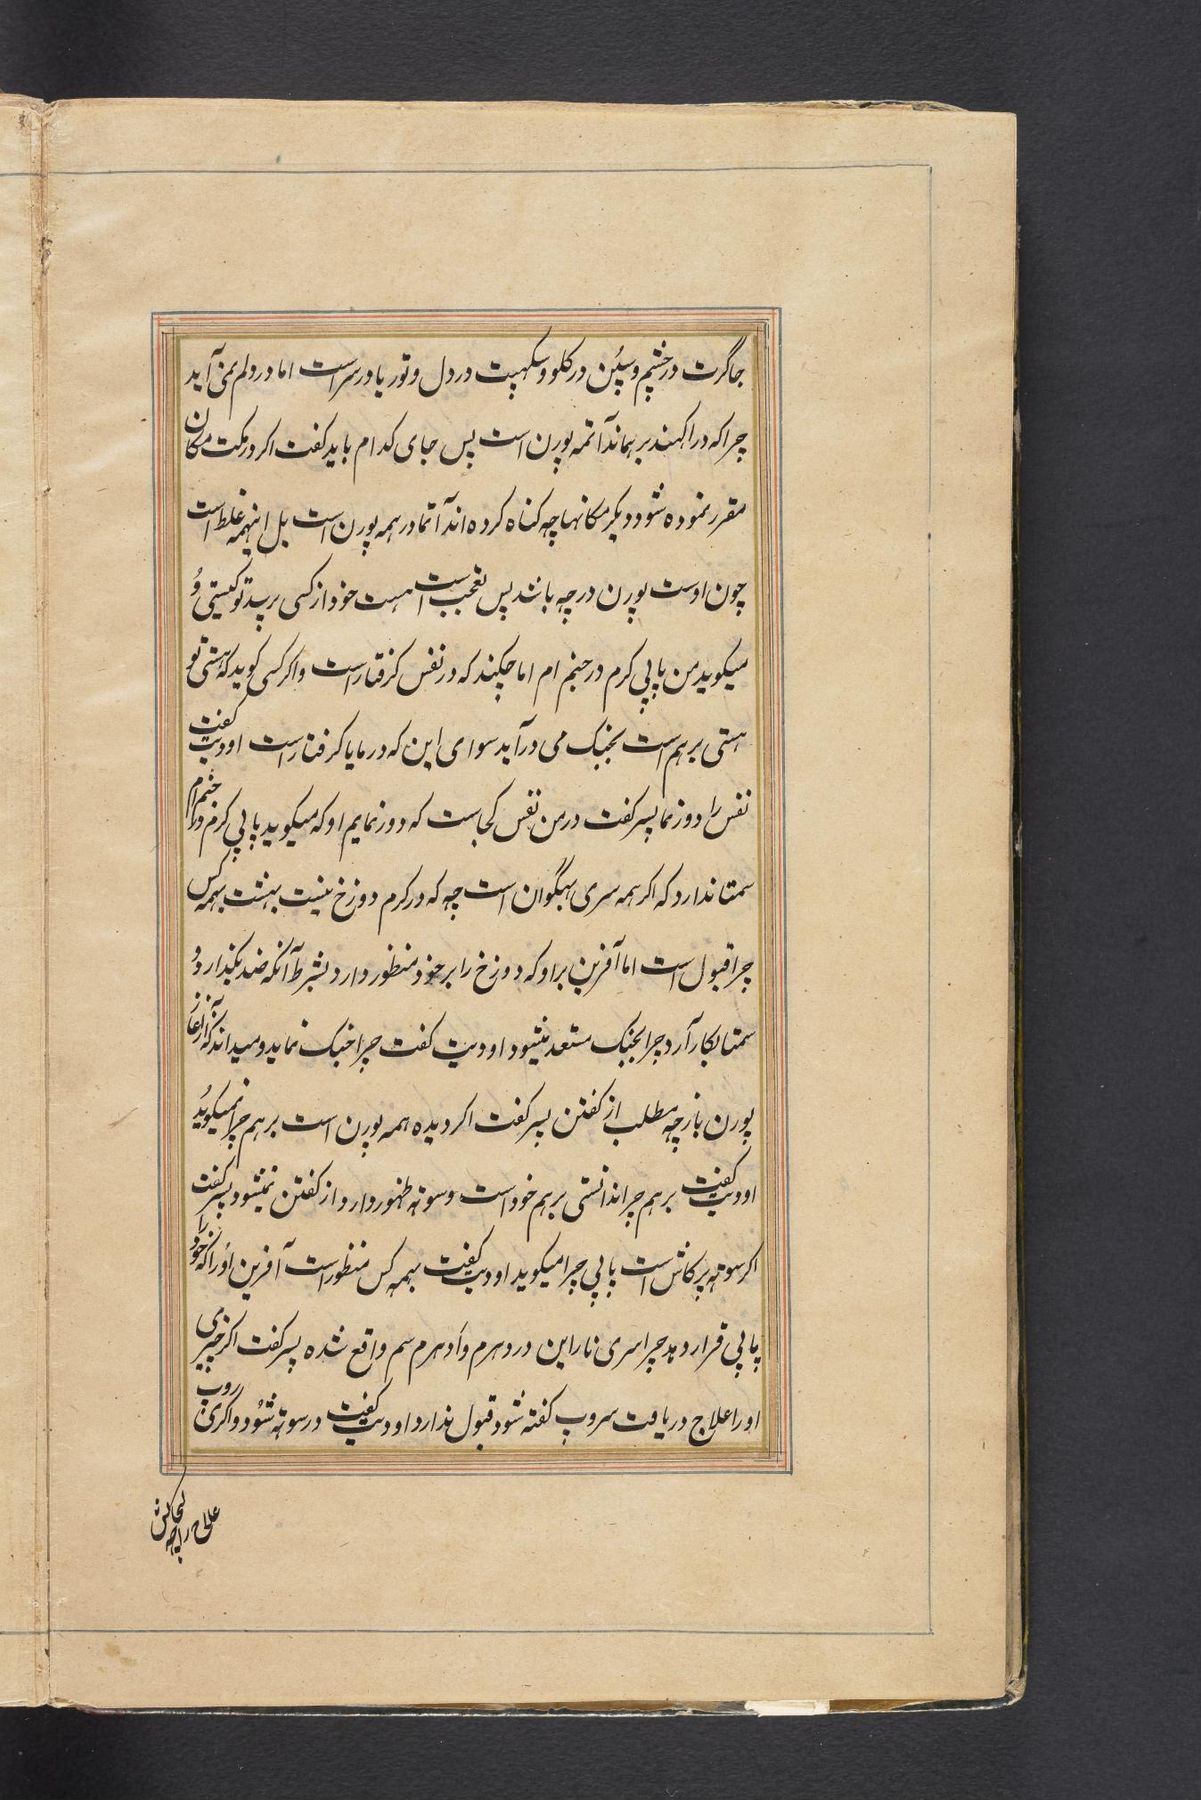 جاگرت در چشم و سپُن در کلو و سکهپت در دل و توریا در سر است اما در دلم نمی آید
چراکه در اکهند برهماند آتمه پورن است پس جای کدام باید کفت اکر در مکت مکان
مقرر نموده شود دیکر مکانها چه کناه کرده اند آتما در همه پورن است بل اینهمه غلط است
چون اوست پورن در چه باشد پس تعجب است هست خود از کسی پرسد تو کیستی وُ
میکوید من پاپی کرم در جنم ام اما چکند که در نفس کرفتار است و اکر کسی کوید که هستی تو
هستی برهم است بجنک می درآید سوای این که در مایا کرفتار است اودیت کفت
نفس را دور نما پسر کفت در من نفس کجاست که دور نمایم او که میکوید پاپی کرم در جنم ام
سمتا ندارد که اکر همه سری بهگوان است چه که در کرم دوزخ نیست بهشت بهمه کس
چرا قبول است اما آفرین بر او که دوزخ را بر خود منظور دارد بشرط آنکه ضد بکذارد وُ
سمتا بکار آرد چرا بجنک مستعد میشود اودیت کفت چرا جنک نماید و میداند که از آغاز
پورن باز چه مطلب از کفتن پسر کفت اکر دیده همه پورن است برهم چرا نمیکویُد
اودیت کفت برهم چرا ندانستی برهم خود است و سوته ظهور دارد از کفتن نمیشود پسر کفت
اکر سوته پرکاش است پاپی چرا میکوید اودیت کفت بهمه کس منظور است آفرین اوراکه خود را
پاپی قرار دهد چرا سری نارایین در دهرم و اَدهرم سم واقع شده پسر کفت اکر چیزی
اورا علاج دریافت سروپ کفته شود قبول ندارد اودیت کفت در سوته شوُد و اکری روپ
علاج